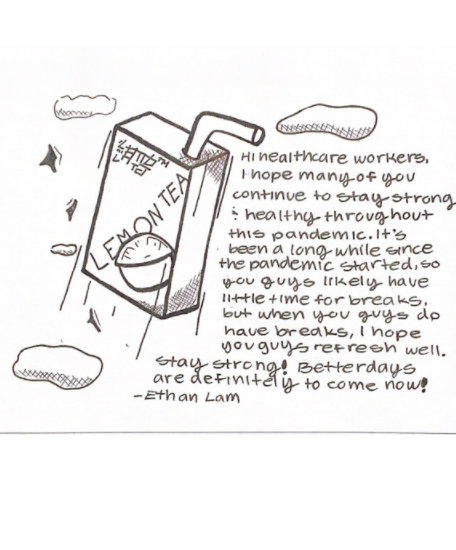 LEMON TEA
Hi healthcare workers,
I hope many of you
continue to stay strong
& healthy throughout
this pandemic. It's
been a long while since
the pandemic started, so
you guys likely have
little time for breaks,
but when you guys do
have breaks, I hope
you guys refresh well.
Stay strong! Better days
are definitely to come now!
-Ethan Lam